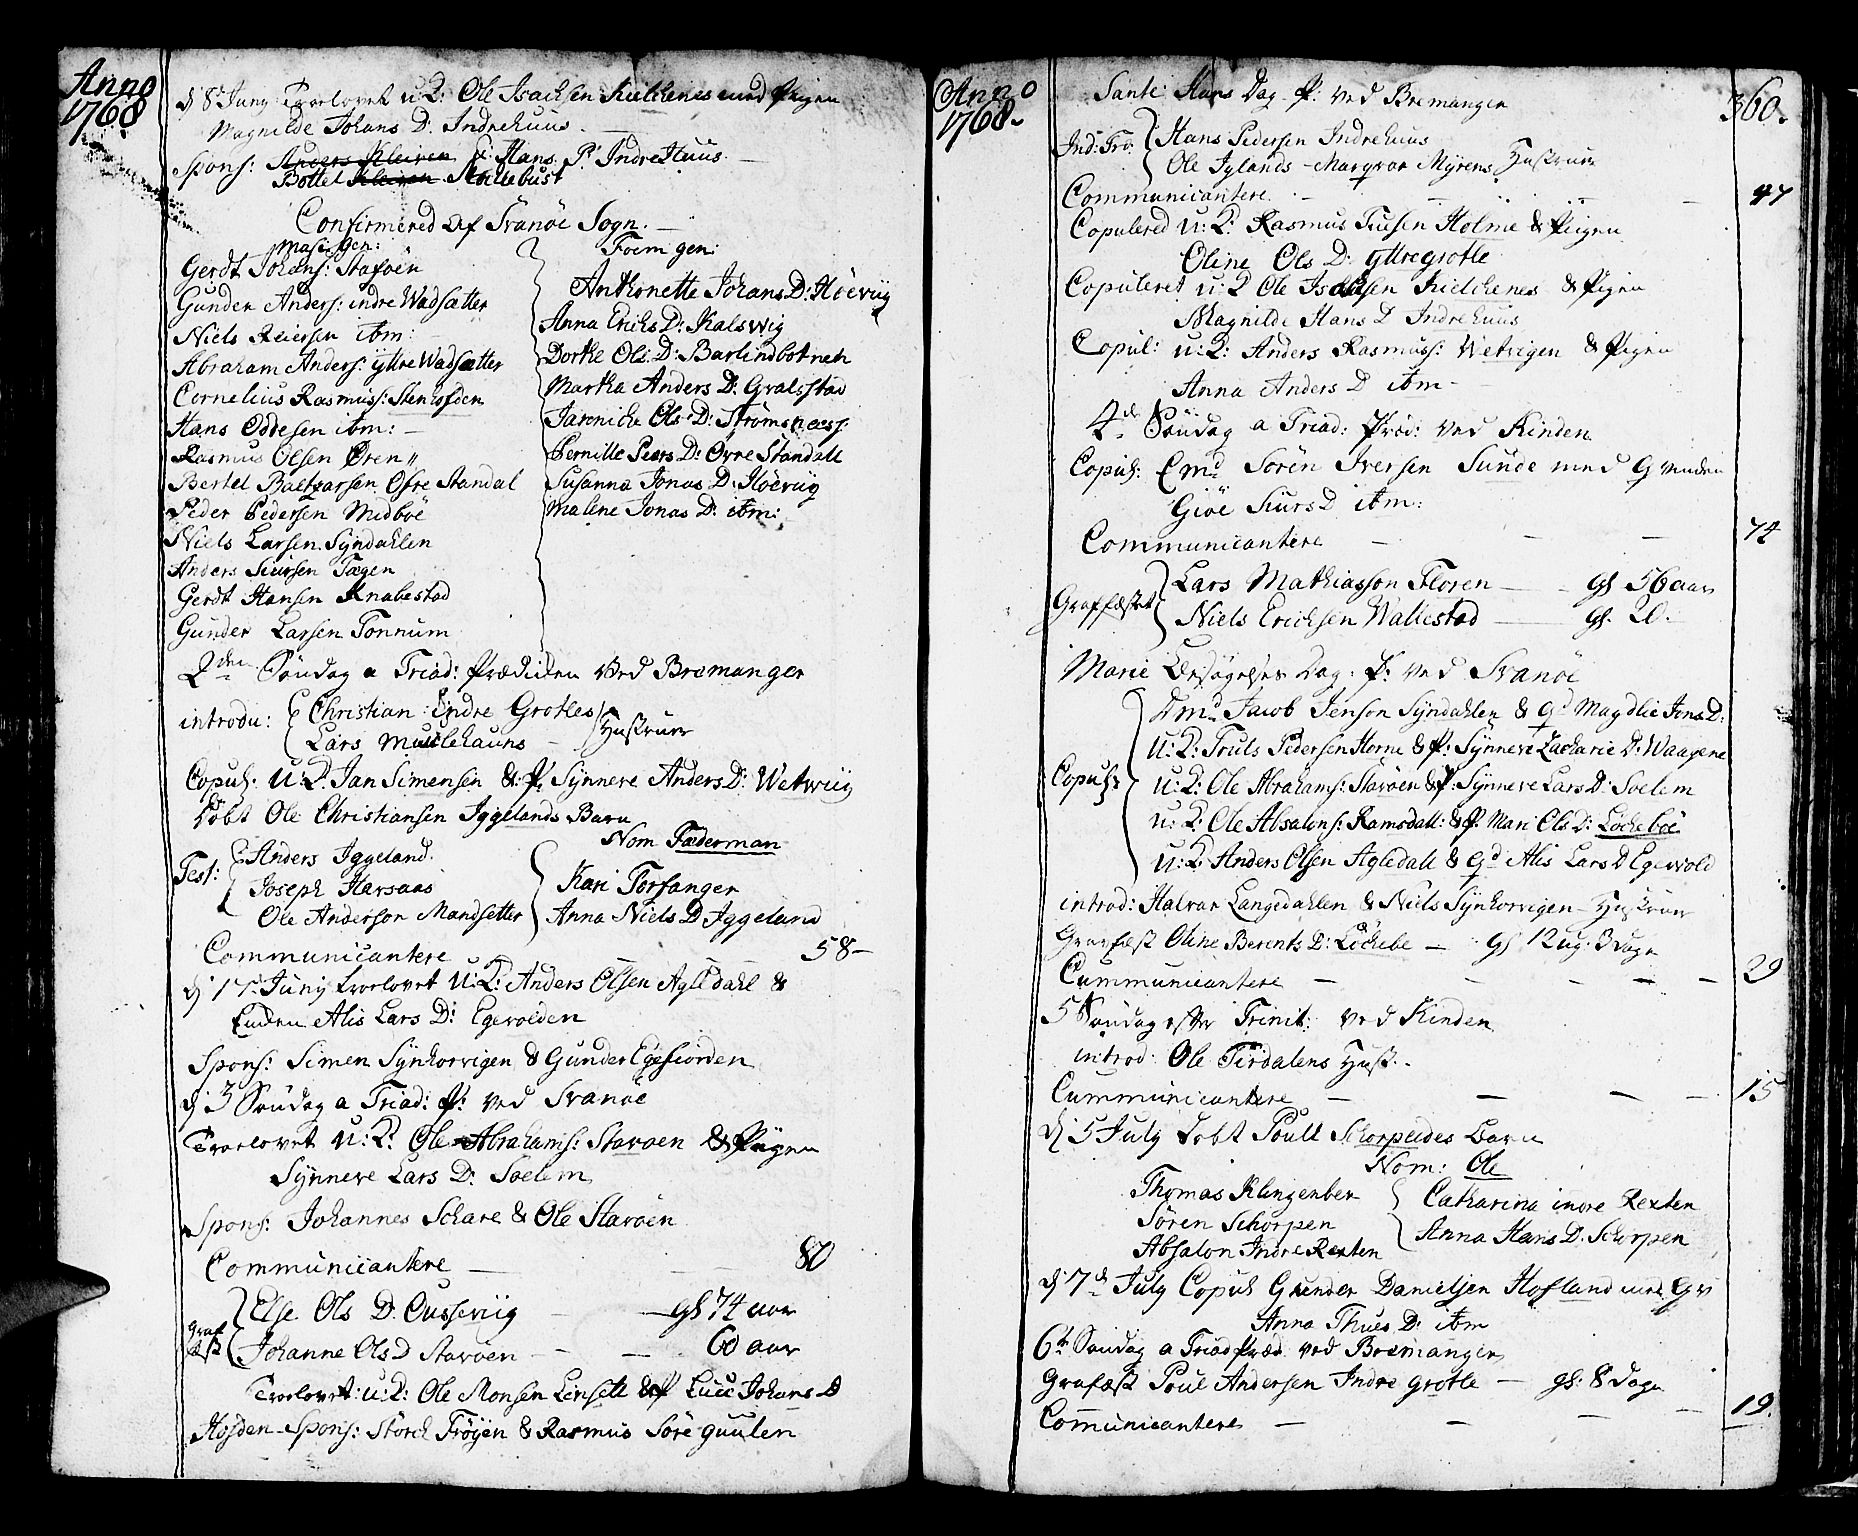 Anno
1768
d 8 Juny Troelovet u: K: Ole Isachsen Kielchenes med Pigen
Magnilde Johans D. Indrehuus.
Spons: Anders Kleiven & Hans P. IndreHuus
Bottel Kleiven Stachebust
Confirmered Af Svanöe Sogn.
Masc: gen:
Gerdt Johans: Staföen
Gunder Anders: indre Wadsætter
Niels Reiersen ibm:
Abraham Anders: yttre Wadsætter
Cornelius Rasmuss: Stenhofden
Hans Oddesen ibm:
Rasmus Olsen Øren
Bertel Baltzarsen Ofre Standal
Peder Pedersen Midböe
Niels Larsen Syndahlen
Anders Siursen Tægen
Gerdt Hansen Knabestad
Gunder Larsen Tonnum
Foem gen:
Anthonette Johans D: Höeviig
Anna Erichs D: Kalswig
Dorthe Ols D: Barlindbotneh
Martha Anders D: Gralsstad
Janniche Ols D: Strömsness:
Pernille Peers D: Øvre Standall
Susanna Jonas D: Höeviig
Malene Jonas D: ibm:
2den Söndag a Triad: Prædiken Ved Bremanger
introdu: Christian Indre Grotles
Lars Mullehauns
Hustruer
Copul: U: K: Jan Simensen & P: Synneve Anders D: Wetwiig
Döbt Ole Christiansen Iggelands Barn
Nom Fæderman
Test: Anders Iggeland
Joseph Harsaas
Ole Anderson Mandsetter
Kari Torfanger
Anna Niels D Iggeland
Communicantere 58
d 17 Juny troelovet U: K: Anders Olsen Agledahl &
Enken Alis Lars D: Egevolden
Spons: Simen Synhorvigen & Gunder Egefiorden
d 3 Söndag a Triad: P: ved Svanöe
Troelovet U: K: Ole Abrahams: Stavöen & Pigen
Synneve Lars D: Soelem
Spons: Johannes Schare & Ole Stavöen
Communicantere 80
Graf
fæst
Else Ols D. Ousseviig gl 74 aar
Johanne Ols D Stavöen 60 aar
Troelovet: u: K: Ole Monsen Linsett & P Lucie Johans D
Hofden Spons: Störch Fröyen & Rasmus Söre guulen
Anno
1768
360.
Sante Hans Dag P: ved Bremanger
Ind: Tro: Hans Pedersen Indrehuus
Ole Iglands Margrar Myrens Hustruer
Communicantere 47
Copulered U: K: Rasmus Tuesen Holme & Pigen
Oline Ols D: yttregrotle
Copuleret u: K Ole Isachsen Kielchenes & Pigen
Magnilde Hans D Indrehuus
Copul: u: K: Anders Rasmuss: Wetvigen & Pigen
Anna Anders D ibm
4de Söndag a Triad: Præd: Ved Kinden
Copul: Emd Sören Iversen Sunde med Qvinden
Giöe Siurs D ibm:
Communicantere 74
Graffæstet Lars Mathiasson Floren gl 56 aar
Niels Erichsen Wallestad gl. 20.
Marie Besögelses Dag P: ved Svanöe
Copul: Emd Jacob Jenson Syndahlen & Qd Magdlie Jons D:
U: K: Truls Pedersen Horne & P: Synneve Zacharie D: Waagene
u: K: Ole Abrahams: Stavöen & P: Synneve Lars D: Soelem
u: K: Ole Absalons: Ramsdall: & P. Mari Ols D: Löcheböe
U: K: Anders Olsen Agledall & Qd Alis Lars D Egevold
introd: Halvar Langedahlen & Niels Synhorvigen Hustruer
Graffæst Oline Berents D: Löchebe gl 12 ug: 3 dage
Cummunicantere 29
5 Söndag efter Trinit: Ved Kinden
introd: Ole Tirdalens Hust.
Cummunicantere 15
d 5 July Döbt Poull Schorpeides Barn
Nom: Ole
Thomas Klingenber
Sören Schorpen
Absalon Indre Rexten
Catharina indre Rexten
Anna Hans D. Schorpen
d 7de July Copul Gunder Danielsen Hofland med Qv
Anna Thues D: ibm
6te Söndag a Triad Præd Ved Bremanger
Grafæst Poul Andersen Indre grotle gl: 8 dage
Communicantere 19.